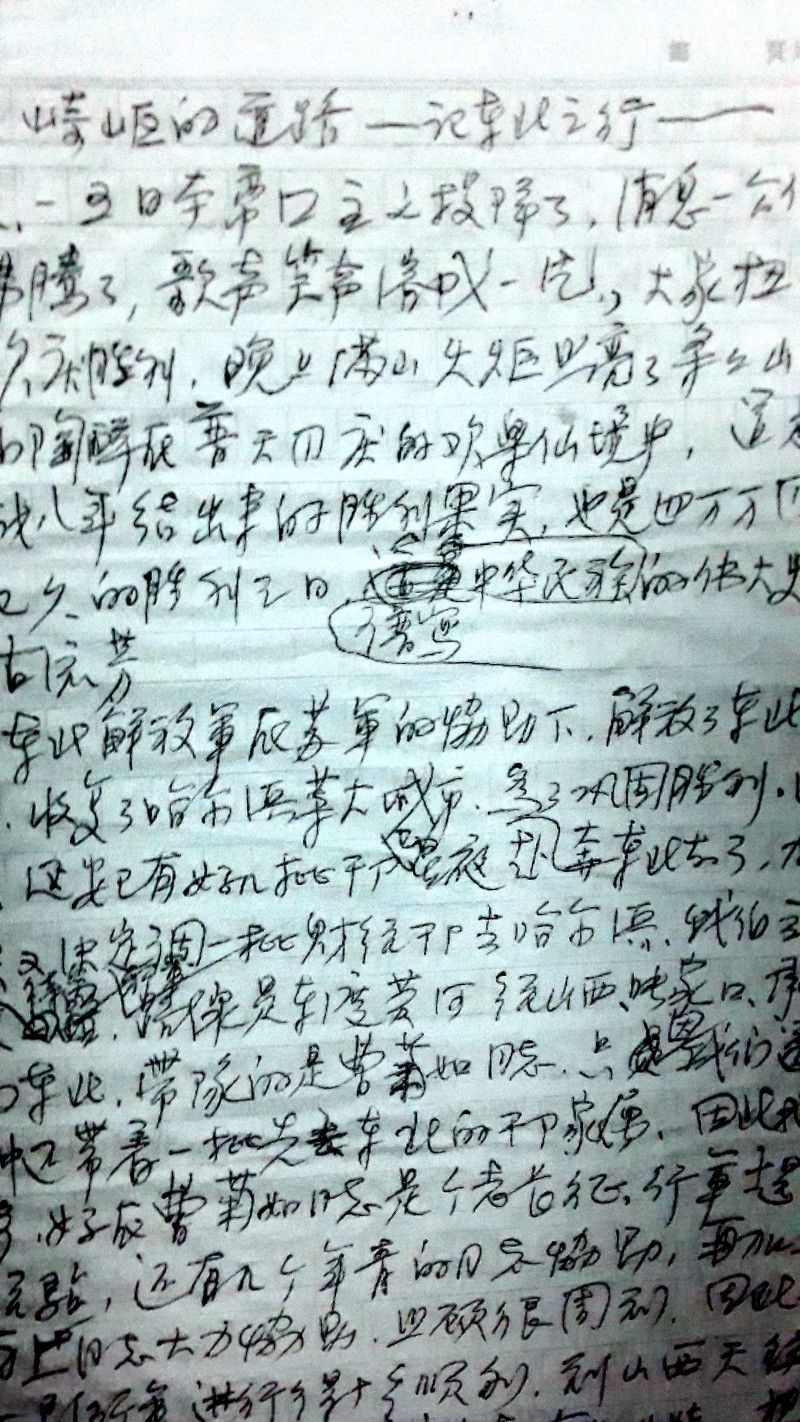 第 页
崎岖的道路——记东北之行——
八.一五日本帝口主义投降了,消息一传
沸腾了,歌声笑声溶成一片,大家扭
久庆胜利,晚上满山火炬照亮了条条山
的陶醉在普天同庆的欢乐仙境中,这是
战八年结出来的胜利果实,也是四万万同
已久的胜利之日,中华民族的伟大史
谱写
古流芳
东北解放军在苏军的协助下,解放了东北
收复了哈尔滨等大城市,为了巩固胜利,
延安已有好几批干卩星夜赴奔东北去了,
又决定调一批财经干卩去哈尔滨,我们
路线是东渡黄河经山西、张家口、承
东北,带队的是曹菊如同志,只是因我们这
中还带着一批先去东北的干卩家属,因此
好在曹菊如同志是个老长征,行军
经验,还有几个年青的同志协助,再加
上同志大力协助,照顾很周到,因此
进行得十分顺利,到山西天镇